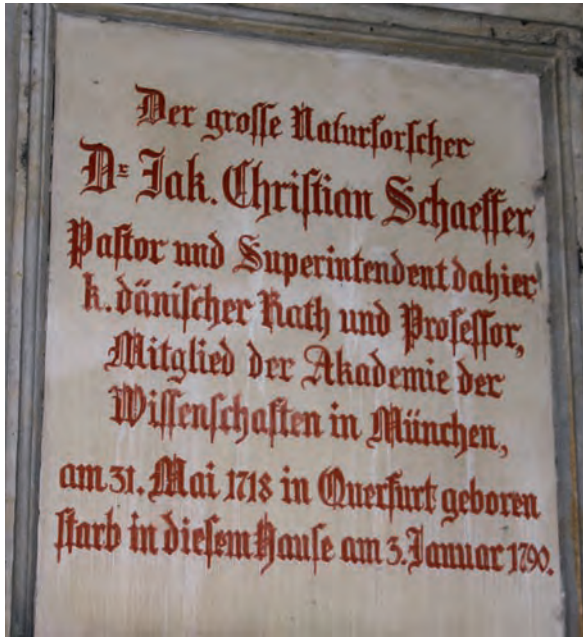 Der grosse Naturforscher
Dr Jak. Christian Schaeffer,
Pastor und Superintendent dahier,
k. dänischer Rath und Professor,
Mitglied der Akademie der
Wissenschaften in München,
am 31. Mai 1718 in Querfurt geboren
starb in diesem Hause am 3. Januar 1790.